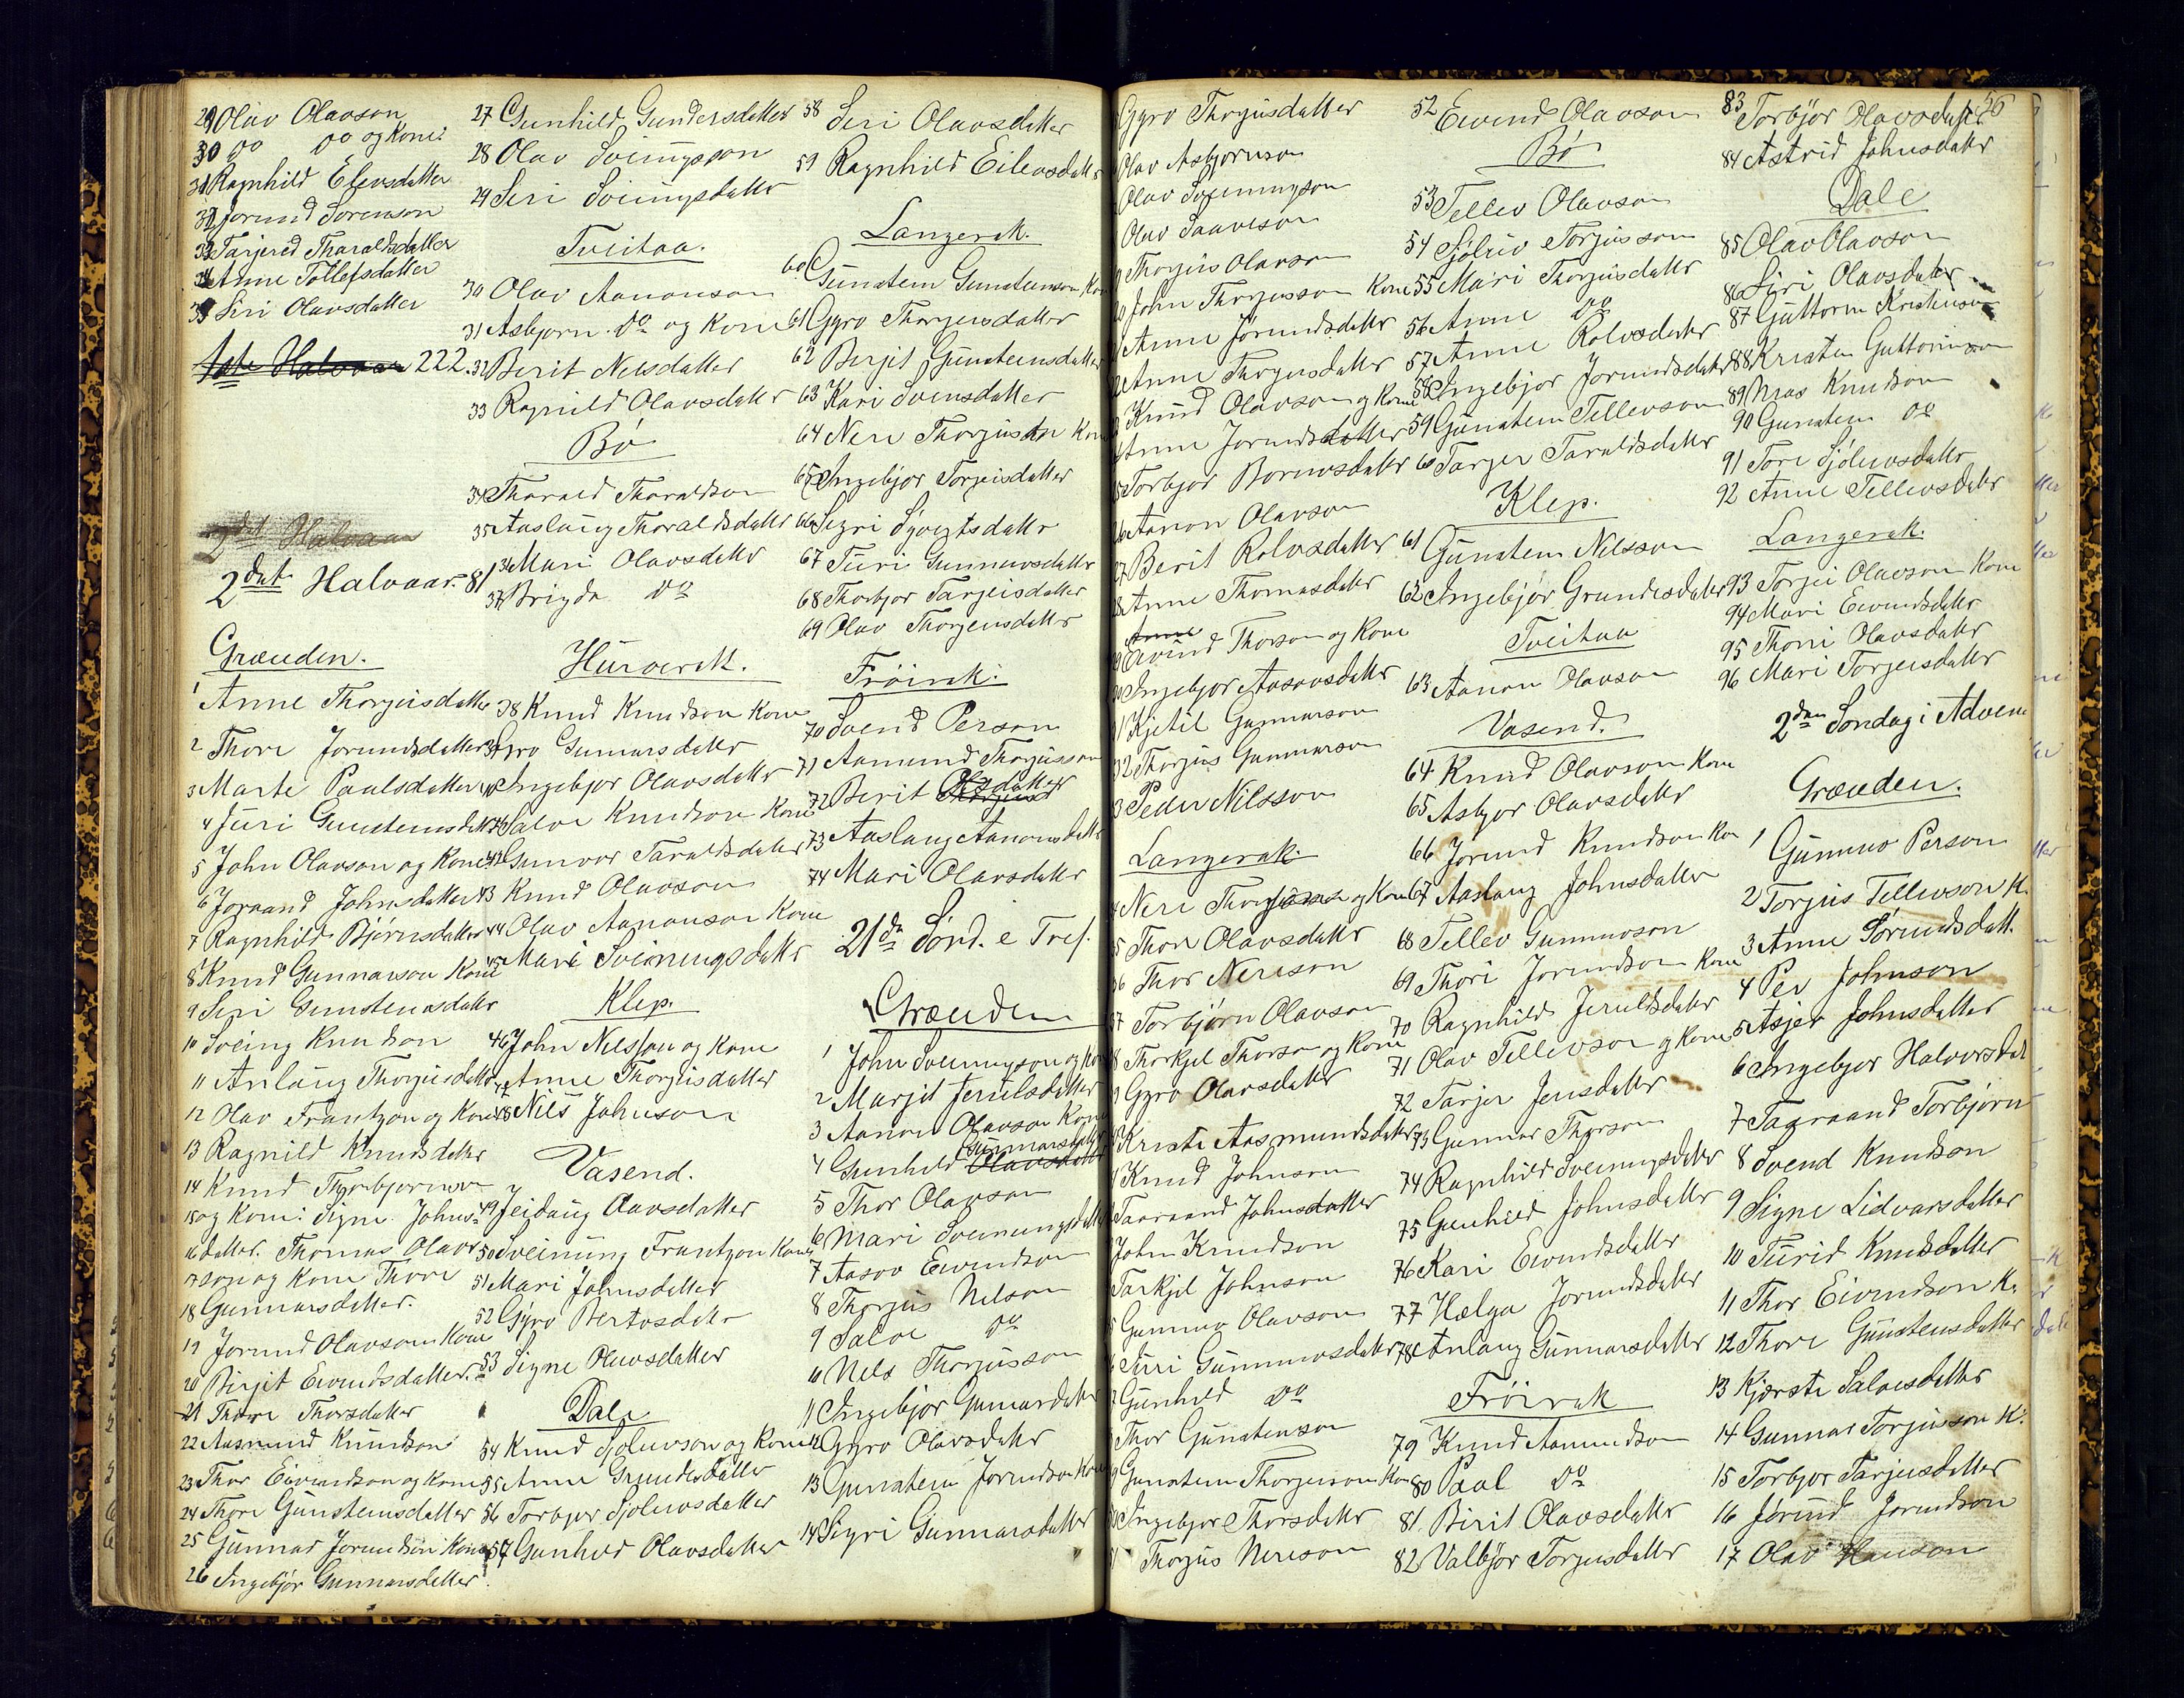 29 Olav Olavson
30 do do og Kone:
31 Ragnhild Elevsdatter
32 Jorund Sorenson
33 Tarjerd Tharaldsdatter
34 Anne Tollefsdatter
35 Siri Olavsdatter
1ste Halvaar 222.
2det Halvaar
2det Halvaar. 81
Grœuden.
1 Anne Thorgiusdatter
2 Thore Jorundsdatter
3 Marte Paulsdatter
4 Juri Gunstensdatter
5 John Olavson og Kone
6 Joraand Johnsdatter
7 Ragnhild Bjørnsdatter
8 Knud Gunnarson Kone
9 Siri Gunstensdatter
10 Sveing Knudson
11 Anlaug Thorgiusdatter
12 Olav Frantzon og Kone
13 Ragnild Knudsdatter
14 Knud Thorbjornson
15 og Kone: Signe Johns-
16 datter. Thomas Olav
17 son og Kone Thore
18 Gunnarsdatter.
19 Jorund Olavson Kone
20 Birgit Eivindsdatter.
21 Thore Thorsdatter
22 Aasmund Knudson
23 Thor Eivindson og Kone
24 Thore Gunstensdatter
25 Gunnar Jorundson Kone
26 Ingebjør Gunnarsdatter.
27 Gunhild Gundersdatter
28 Olav Sveingsson
29 Siri Sveingsdatter
Tveitaa.
30 Olav Aanonson
31 Asbjorn do og Kone
32 Berit Nelsdatter
33 Ragnild Olavsdatter
Bø
34 Tharald Tharaldson
35 Aaslaug Tharaldsdatter
36 Mari Olavsdatter
37 Brigda do
Hurverk.
38 Knud Knudson Kone
39 Gyro Gunnarsdatter
40 Ingebjor Olavsdatter
41 Salve Knudson Kone
42 Gunvor Taraldsdatter
43 Knud Olavson
44 Olav Aanonson Kone
45 Mari Sveinungsdatter
Klep.
46 John Nilsson og Kone
47 Anne Thorgiusdatter
48 Nils Johnson
Vasend.
49 Jeidaug Olavsdatter
50 Sveinung Frantzon Kone
51 Mari Johnsdatter
52 Gyro Bertosdatter
53 Signe Olavsdatter
Dale
54 Knud Sjolevson og Kone
55 Anne Grundesdatter
56 Torbjor Sjolevsdatter
57 Gunhild Olavsdatter
58 Siri Olavsdatter
59 Ragnhild Eilevsdatter
Langerak.
60 Gunstem Gunstemson Kone
61 Gyro Thorgiusdatter
62 Berjit Gunsteensdatter
63 Kari Svensdatter
64 Neri Thorgiuson Kone
65 Ingebjor Torgeisdatter
66 Segri Syvertsdatter
67 Turi Gunnuvsdatter
68 Thorbjor Targeisdatter
69 Olav Thorgeusdatter
Frøirak.
70 Svend Person
71 Aamund Thorgiusson
72 Berit Olsdatter
73 Aaslaug Aanonsdatter
74 Mari Olavsdatter
21de Sønd. e Tref.
Grœuden
1 John Sveinungson og Kone
2 Margit Jerulsdatter
3 Aanon Olavson Kone
4 Gunhild Olavsdatter Gunnarsdatter
5 Thor Olavson
6 Mari Sveinungsdatter
7 Aasov Eivindson
8 Thorgius Nilson
9 Salve do
10 Nils Thorgiusson
11 Ingebjor Gunnarsdatter
12 Gyro Olavsdatter
13 Gunstein Jorundson Kone
14 Sigri Gunnarsdatter
Gyro Thorgiusdatter
Olav Asbjornson
Olav Sveinungson
Olav Saaveson
Thorgius Olavson
John Thorgiusson Kone
Anne Jorundsdatter
Anne Thorgiusdatter
Knud Olavson og Kone
Anne Jorundsdatter
Torbjor Bornvsdatter
Aanon Olavson
27 Berit Rolvsdatter
28 Anne Thomasdatter
Anne
Eivind Thorson og Kone
30 Ingebjor Aasovsdatter
31 Kjetil Gunnarson
32 Thorgius Gunnarson
33 Peder Nilsson
Langerak.
Neri Thorgiuson og Kone
35 Thor Olavsdatter
36 Thor Nerison
37 Torbjørn Olavson
38 Thorkjel Thorson og Kone
Gyro Olavsdatter
Kristi Aasmundsdatter
Knud Johnson
Taaraand Johnsdatter
John Knudson
Tarkjel Johnson
Gunnuv Olavson
Turi Gunnuvsdatter
Gunhild do
Thor Gunstenson
Gunstein Thorgiuson Kone
Ingebjor Thorsdatter
Thorgius Nerison
52 Eivend Olavson
Bø
53 Tellev Olavson
54 Sjølev Torjusson
55 Mari Thorgiusdatter
56 Anne do
57 Anne Rolvsdatter
58 Ingebjor Jorundsdatter
59 Gunstein Tellevson
60 Targer Taraldsdatter
Klep.
61 Gunstein Nilsson
62 Ingebjør Grundesdatter
Tveitaa
63 Aanon Olavson
Vasend.
64 Knud Olavson Kone
65 Asbjor Olavsdatter
66 Jorund Knudson Kon
67 Aaslaug Johnsdatter
68 Tellev Gunnuvson
69 Thori Jorundson Kone
70 Ragnhild Jeruldsdatter
71 Olav Tellevson og Kone
72 Tarjer Jensdatter
73 Gunnar Thorson
74 Ragnhild Sveinungsdatter
75 Gunhild Johnsdatter
76 Kari Eivindsdatter
77 Hælga Jorundsdatter
78 Anlaug Gunnarsdatter
Frøirak
79 Knud Aamundson
80 Paal do
81. Birit Olavsdatter
82 Valbjør Torgeusdatter
83 Torbjør Olavsdatter
56
84 Astrid Johnsdatter
Dale
85 Olav Olavson
86 Siri Olavsdatter
87 Guttorm Kristenson
88 Kristen Guttormson
89 Aras Knudson
90 Gunstein do
91 Tore Sjølevsdatter
92 Anne Tellevsdatter
Langerak.
93 Torjei Olavson Kone
94 Mari Eivindsdatter
95 Thori Olavsdatter
96 Mari Torgeisdatter
2den Søndag i Adven
Grœuden.
1 Gunnuv Person
2 Torjus Tellevson K.
3 Anne Jorundsdatt.
4 Per Johnson
5 Asjer Johnsdatter
6 Ingebjor Halvorsdat
7 Taaraand Torbjørn
8 Svend Knudson
9 Signe Lidvarsdatter
10 Turid Knudsdatter
11 Thor Eivindson K.
12 Thore Gunstensdatter
13 Kjærsti Salvesdatter
14 Gunnar Torjusson K.
15 Torbjor Tarjeisdatter
16 Jørund Jorundson
17 Olav Hanson